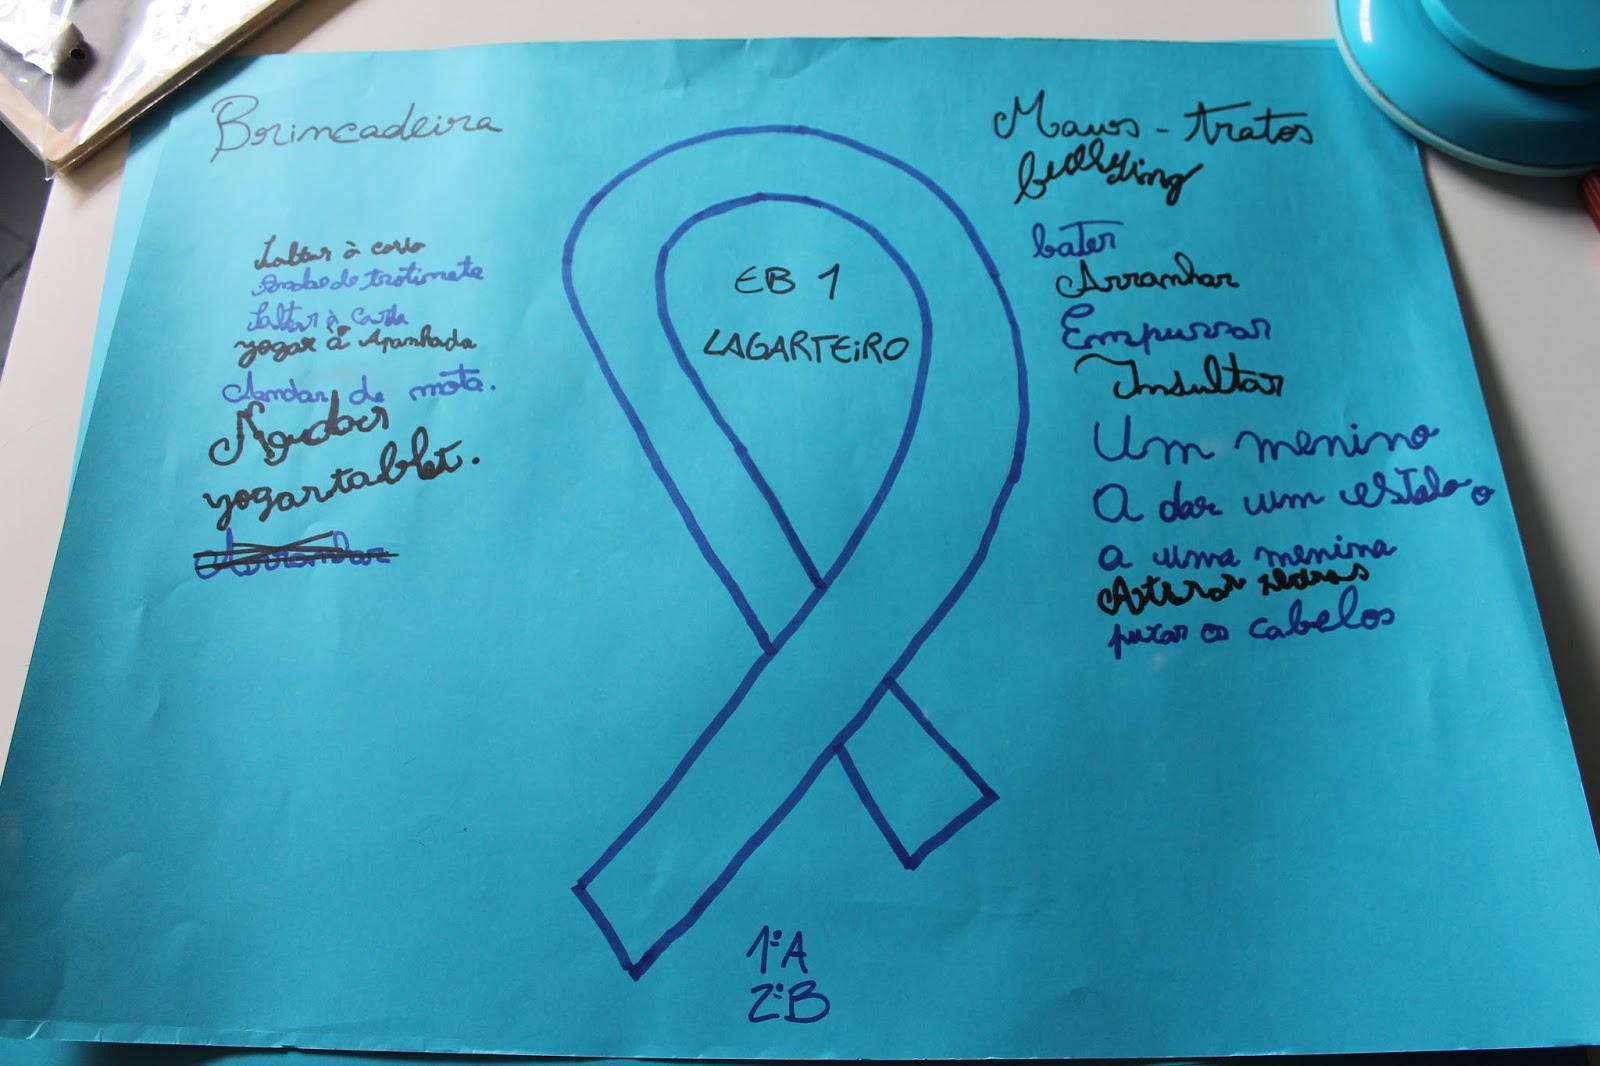 Brincadeira
Saltar à corda
Andar de trotineta
Saltar à Corda
yogar à Apanhada
Aandar de mota.
Ajudar
yogar tablet.
Arranhar
EB 1
LAGARTEIRO
Maus-tratos
bullying
bater
Arranhar
Empurrar
Insultar
Um menino
A dar um estalo
a uma menina
Atirar
puxar os cabelos
1ºA
2ºB